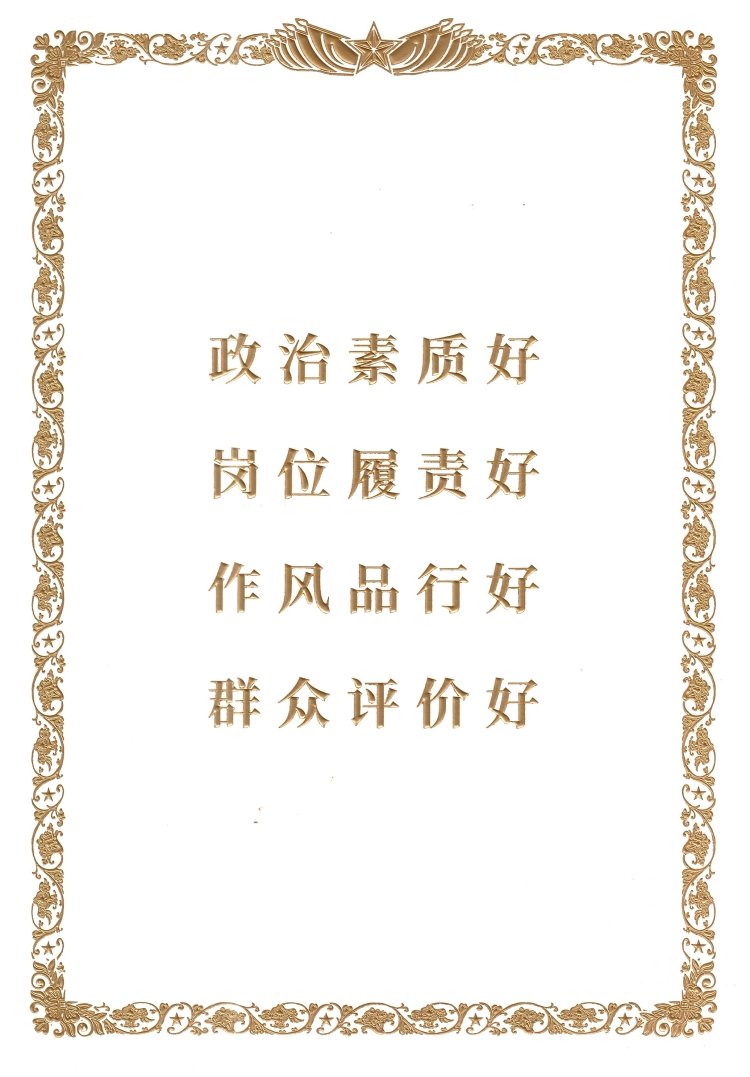 政治素质好
岗位履责好
作风品行好
群众评价好